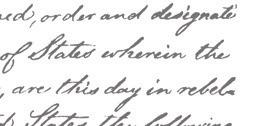 ned, order and designate
of States wherein the
, are this day in rebel
States the following